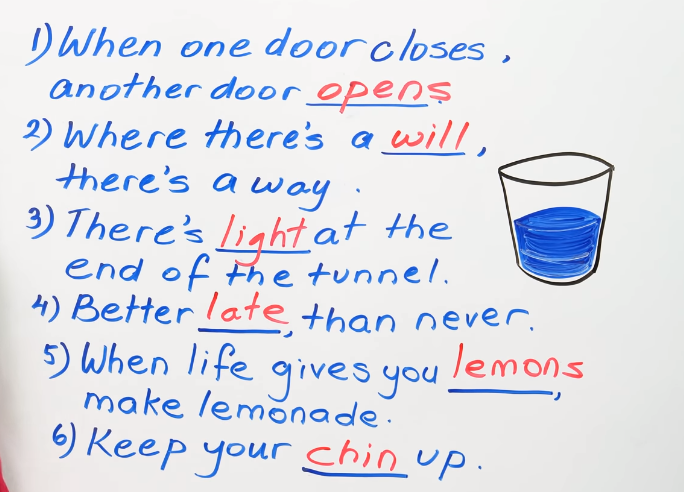 1) When one door closes,
another door opens.
2) Where there's a will,
there's a way.
3) There's light at the
end of the tunnel.
4) Better late, than never.
5) When life gives you lemons,
make lemonade.
6) Keep your chin up.